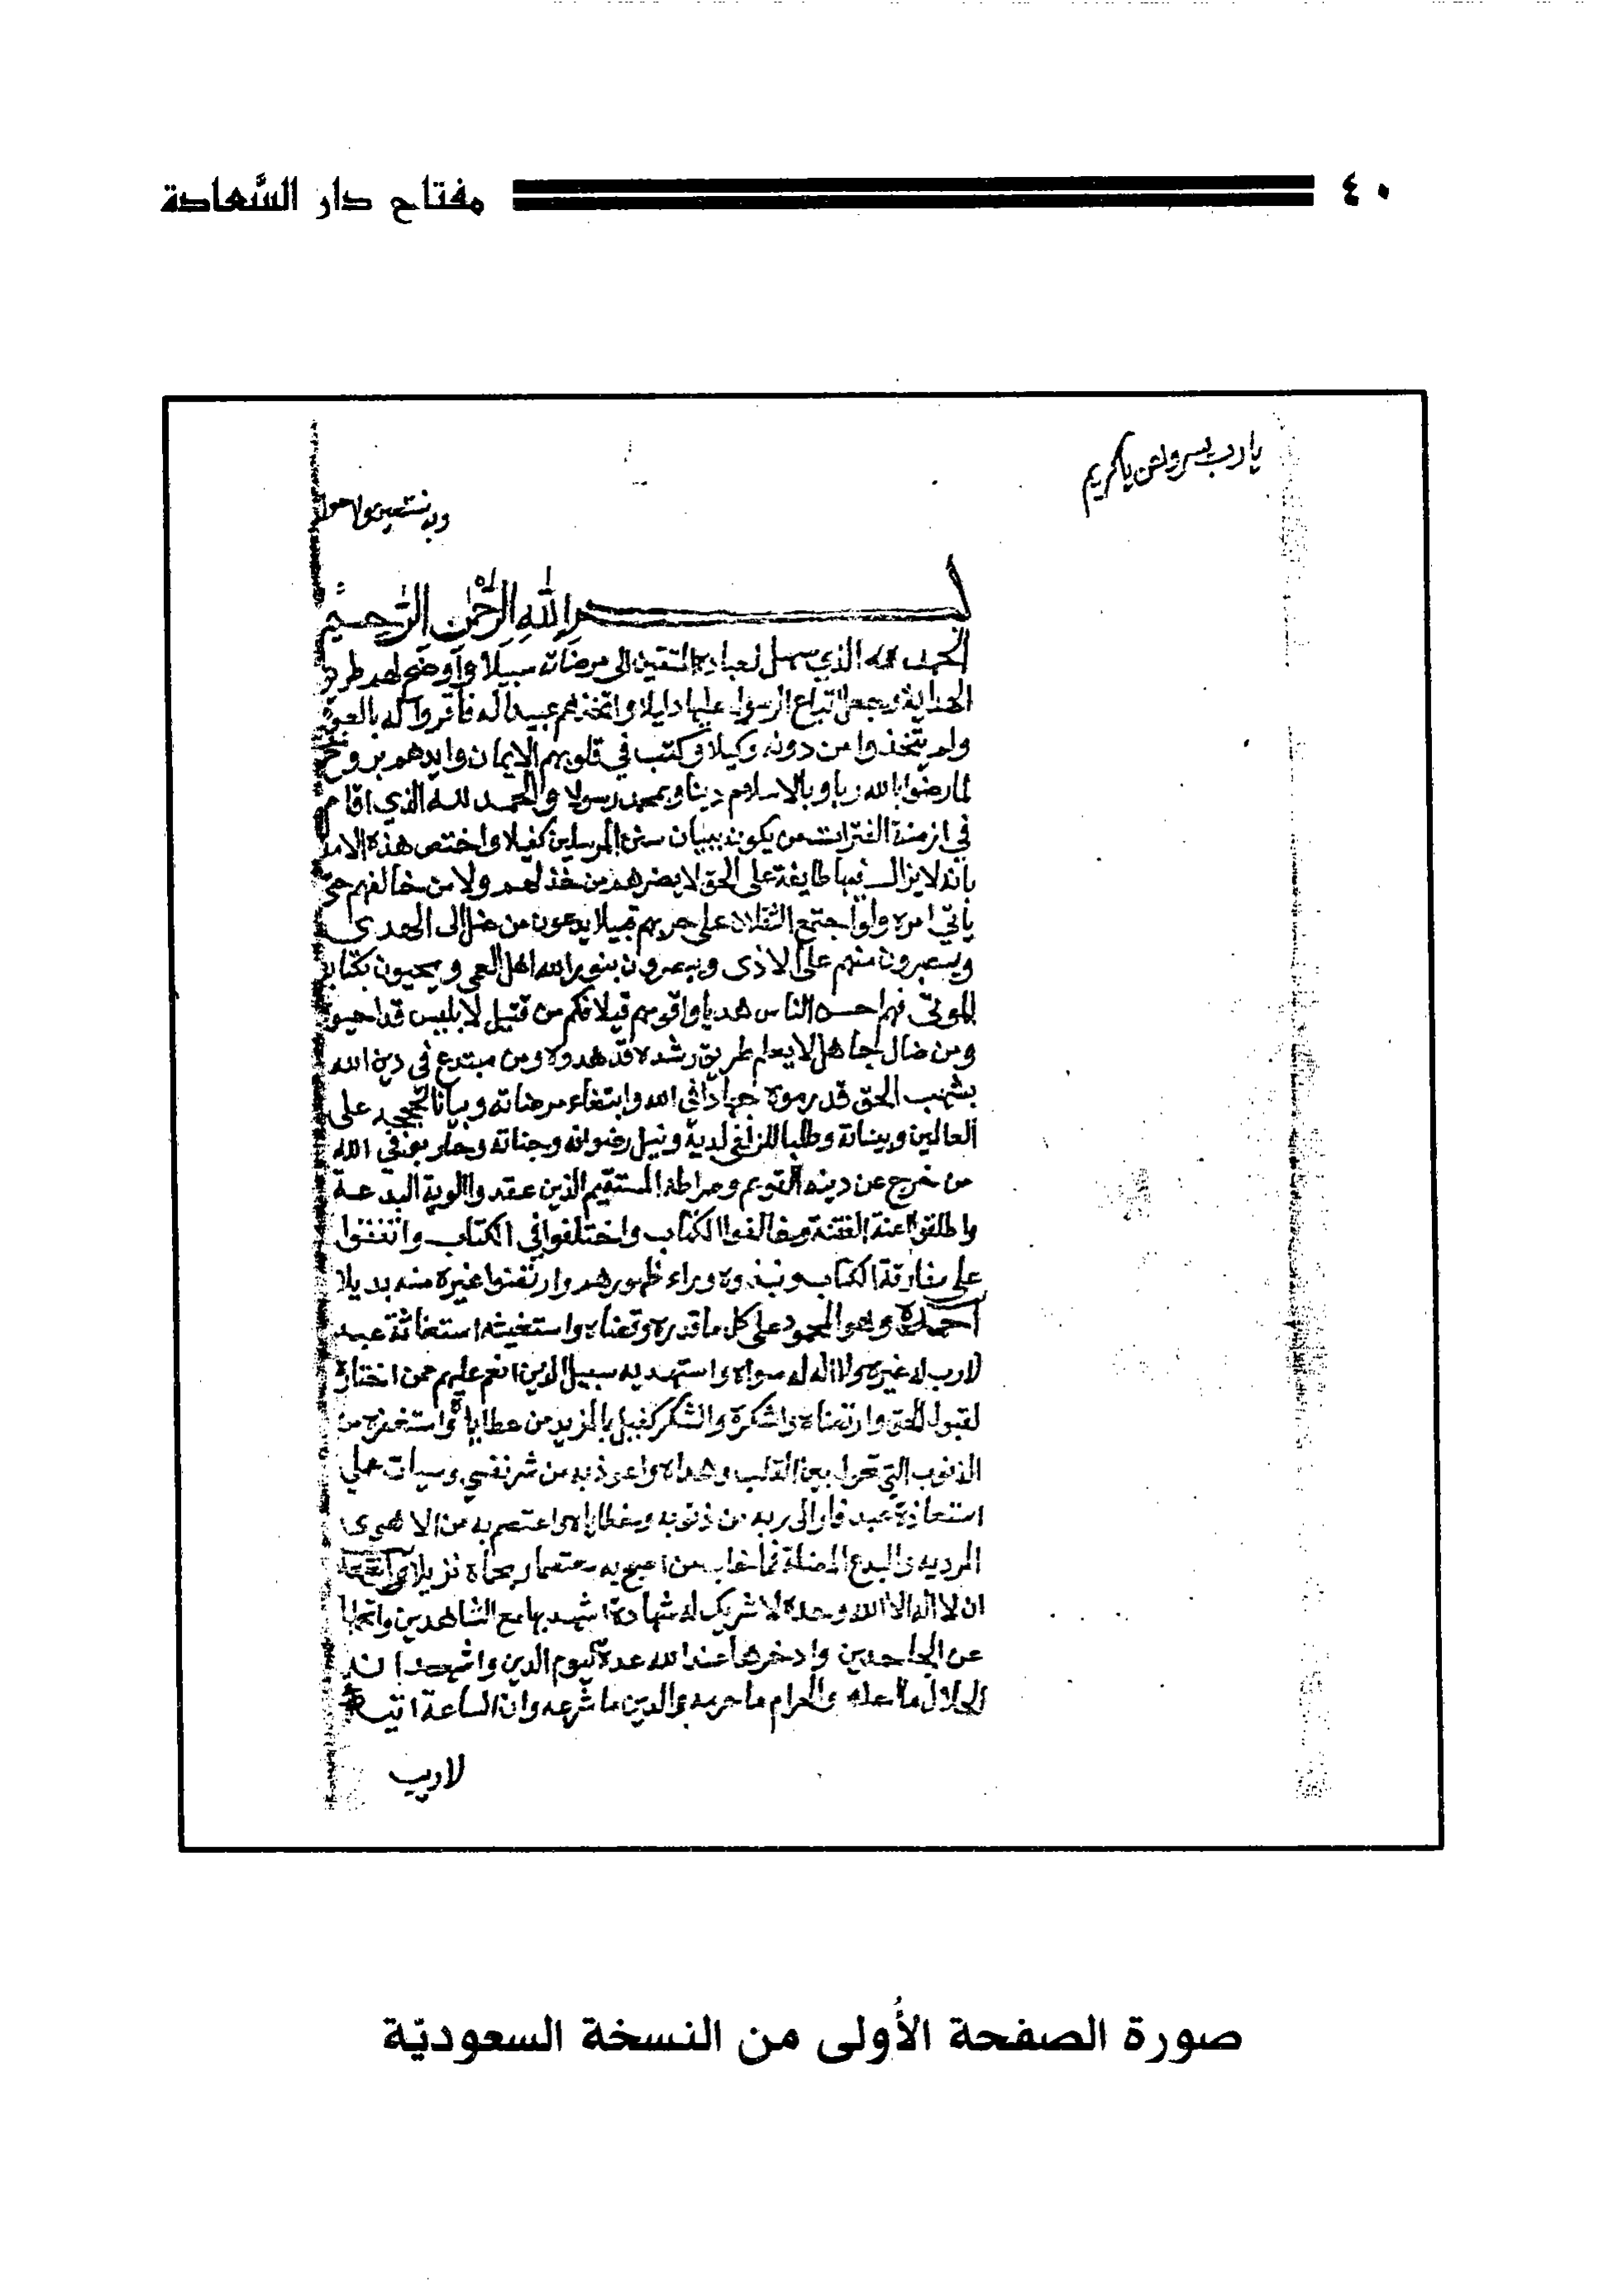 ٤٠
مفتاح دار السَّعادة
يا رب يسر واعن يا كريم
وبه نستعين ولا حول
بسم الله الرحمن الرحيم
الحمد لله الذي سهل لعباده المتقين الى مرضاته سبيلا واوضح لهم طريق
الهداية وجعل اتباع الرسول عليها دليلا واتخذهم عبيدا له فاقروا له بالعبو
ولم يتخذوا من دونه وكيلا وكتب في قلوبهم الايمان وايدهم بروح
لما رضوا بالله ربا وبالاسلام دينا وبمحمد رسولا والحمد لله الذي اقام
في ازمنة الفترات من يكون ببيان سنن المرسلين كفيلا واختص هذه الامة
بانه لا يزال فيها طايفة على الحق لا يضرهم من خذلهم ولا من خالفهم حتى
ياتي امره ولو اجتمع الثقلان على حربهم قبيلا يدعون من ضل الى الهدى
ويصبرون منهم على الاذى ويبصرون بنور الله اهل العمى ويحيون بكتابه
الموتى فهم احسن الناس هديا واقومهم قيلا فكم من قتيل لابليس قد احيو
ومن ضال جاهل لا يعلم طريق رشده قد هدوه ومن مبتدع في دين الله
بشهب الحق قد رموه جهادا في الله وابتغاء مرضاته وبيانا لحججه على
العالمين وبيناته وطلبا للزلفى لديه ونيل رضوانه وجناته وحاربوا في الله
من خرج عن دينه القويم وصراطه المستقيم الذين عقدوا الوية البدعة
واطلقوا اعنة الفتنة وخالفوا الكتاب واختلفوا في الكتاب واتفقوا
على مفارقة الكتاب ونبذوه وراء ظهورهم وارتضوا غيره منه بديلا
احمده وهو المحمود على كل ما قدره وقضاه واستغيثه استغاثة عبد
لا رب له غيره ولا اله له سواه واستهديه سبيل الذين انعم عليهم ممن اختاره
لقبول الحق وارتضاه واشكره والشكر كفيل بالمزيد من عطاياه واستغفره من
الذنوب التي تحول بين القلب وهداه واعوذ به من شر نفسي وسيات عملي
استعاذة عبد فار الى ربه من ذنوبه وخطاياه واعتصم به من الاهوى
المرديه والبدع المضلة فما خاب من اصبح به معتصما وبحماه نزيلا واشهد
ان لا اله الا الله وحده لا شريك له شهادة اشهد بها مع الشاهدين واتحملها
عن الجاحدين وادخرها عند الله عدة ليوم الدين واشهد ان
الحلال ما احله والحرام ما حرمه والدين ما شرعه وان الساعة اتية
لا ريب
صورة الصفحة الأُولى من النسخة السعوديّة